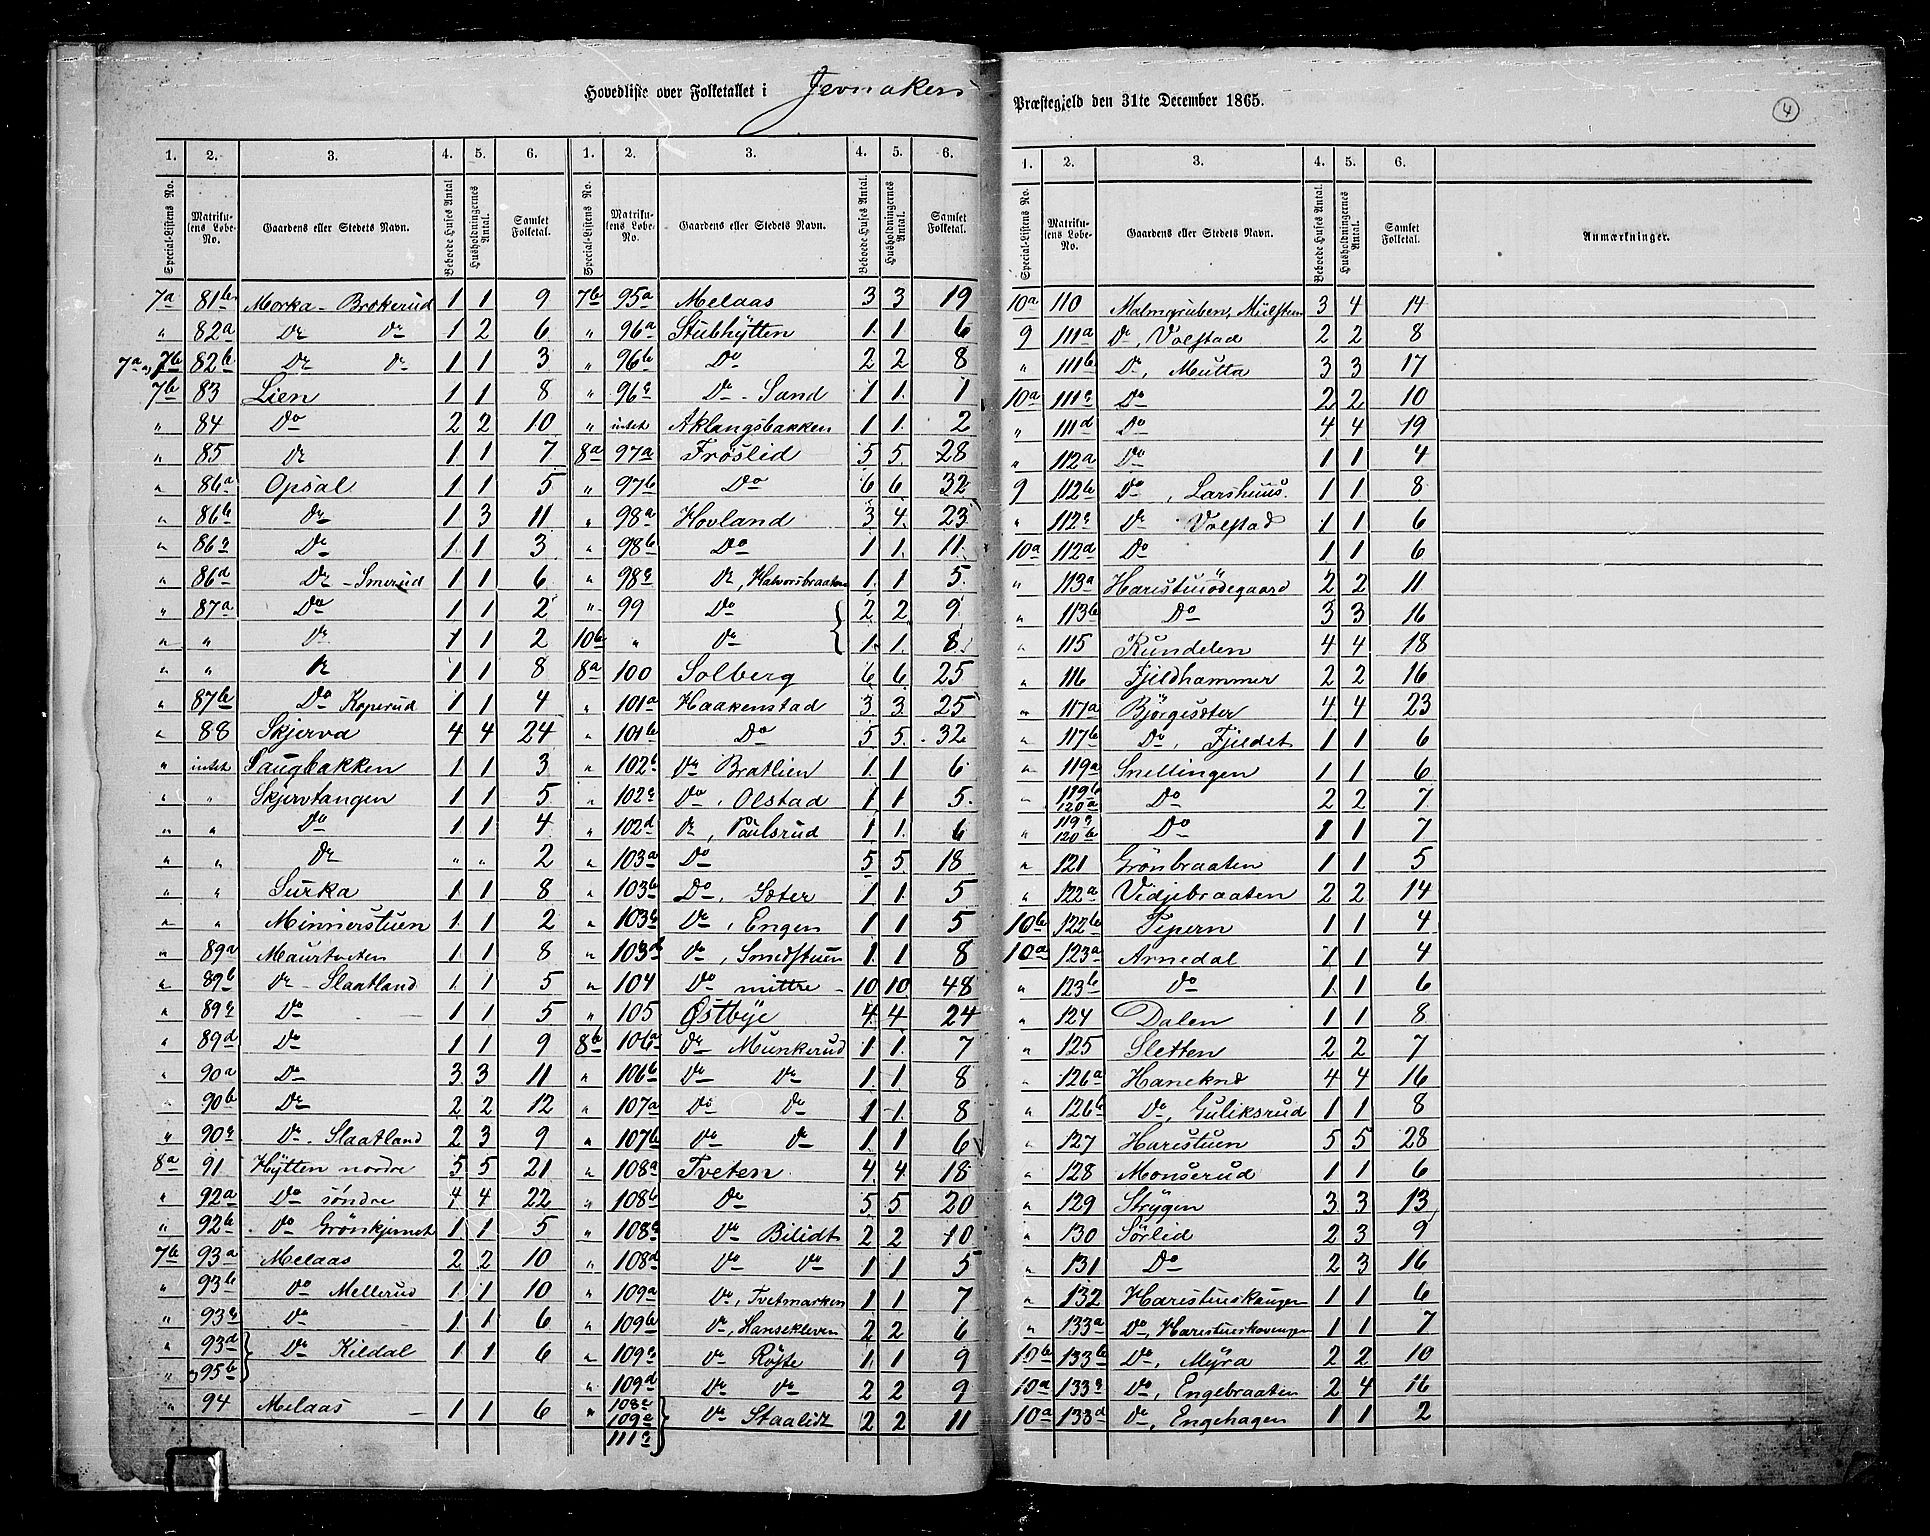 Hovedliste over Folketallet i Jevnakers Præstegjeld den 31te December 1865.
4
1. 2. 3. 4. 5. 6.
Special-Listens No. Matrikulens Løbe-No. Gaardens eller Stedets Navn. Beboede Huses Antal Husholdningernes Antal. Samlet Folketal.
7a 81b Morka-Brokerud 1 1 9
" 82a Do Do 1 2 6
7a og 7b 82b Do Do 1 1 3
7b 83 Lien 1 1 8
" 84 Do 2 2 10
" 85 Do 1 1 7
" 86a Opsal 1 1 5
" 86b Do 1 3 11
" 86c Do 1 1 3
" 86d Do - Smerud 1 1 6
" 87a Do 1 1 2
" " Do 1 1 2
" " Do 1 1 8
" 87b Do Koperud 1 1 4
" 88 Skjerva 4 4 24
" intet Saugbakken 1 1 3
" " Skjervtangen 1 1 5
" " Do 1 1 4
" " Do " " 2
" " Surka 1 1 8
" " Minnerstuen 1 1 2
" 89a Maurtveten 1 1 8
" 89b Do - Slaatland 1 1 5
" 89c Do 1 1 5
" 89d Do 1 1 9
" 90a Do 3 3 11
" 90b Do 2 2 12
" 90c Do. Slaatland 2 3 9
8a 91 Hÿtten nordre 5 5 21
" 92a Do söndre 4 4 22
" 92b Do Grönkjernet 1 1 5
7b 93a Melaas 2 2 10
" 93b Do Mellerud 1 1 10
" 93c Do 1 1 6
" 93d Do Kildal 1 1 6
" og 95b
" 94 Melaas 1 1 6
1. 2. 3. 4. 5. 6.
Special-Listens No. Matrikulens Løbe-No. Gaardens eller Stedets Navn. Beboede Huses Antal. Husholdningernes Antal. Samlet Folketal.
7b 95a Melaas 3 3 19
" 96a Stubhÿtten 1 1 6
" 96b Do 2 2 8
" 96c Do - Sand 1 1 1
" intet Aklangsbakken 1 1 2
8a 97a Fröslid 5 5 28
" 97b Do 6 6 32
" 98a Hovland 3 4 23
" 98b Do 1 1 11
" 98c Do, Halvorsbraaten 1 1 5
" 99 Do 2 2 9
10b " Do 1 1 8
8a 100 Solberg 6 6 25
" 101a Haakenstad 3 3 25
" 101b Do 5 5 32
" 102b Do Bratlien 1 1 6
" 102c Do, Olstad 1 1 5
" 102d Do, Paulsrud 1 1 6
" 103a Do 5 5 18
" 103b Do, Sæter 1 1 5
" 103c Do, Engen 1 1 5
" 103d Do, Smedstuen 1 1 8
" 104 Do mittre 10 10 48
" 105 Østbÿe 4 4 24
8b 106a Do Munkerud 1 1 7
" 106b Do Do 1 1 8
" 107a Do Do 1 1 8
" 107b Do Do 1 1 6
" 108a Tveten 4 4 18
" 108b Do 5 5 20
" 108c Do Bilidt 2 2 10
" 108d Do Do 1 1 5
" 109a Do, Tvetmarken 1 1 7
" 109b Do, Hanekleven 2 2 6
" 109c Do Röjte 1 1 9
" 109d Do Do 2 2 9
" 108e 109e 111c Do Staalidt 2 2 11
1. 2. 3. 4. 5. 6.
Special-Listens No. Matrikulens Løbe-No. Gaardens eller Stedets Navn. Beboede Huses Antal. Husholdningernes Antal. Samlet Folketal. Anmærkninger.
10a 110 Malmgruben, Mülsteen 3 4 14
9 111a Do, Volstad 2 2 8
" 111b Do, Mutta 3 3 17
10a 111c Do 2 2 10
" 111d Do 4 4 19
" 112a Do 1 1 4
9 112b Do, Larshuus 1 1 8
" 112c Do Volstad 1 1 6
10a 112d Do 1 1 6
" 113a Harestuödegaard 2 2 11
" 113b Do 3 3 16
" 115 Rundelen 4 4 18
" 116 Fjeldhammer 2 2 16
" 117a Bjørgesæter 4 4 23
" 117b Do, Fjeldet 1 1 6
" 119a Snellingen 1 1 6
" 119b 120a Do 2 2 7
" 119c 120b Do 1 1 7
" 121 Grönbraaten 1 1 5
" 122a Vidjebraaten 2 2 14
10b 122b Tepern 1 1 4
10a 123a Arnedal 1 1 4
" 123b Do 1 1 6
" 124 Dalen 1 1 8
" 125 Sletten 2 2 7
" 126a Haneknd 4 4 16
" 126b Do, Guliksrud 1 1 8
" 127 Harestuen 5 5 28
" 128 Monserud 1 1 6
" 129 Strÿgen 3 3 13
" 130 Sörlid 2 3 9
" 131 Do 2 3 16
" 132 Harestuskaugen 1 1 6
" 133a Do, Harestueskovengen 1 1 7
10b 133b Do, Mÿra 2 2 10
10a 133c Do, Engebraaten 2 4 16
10a 133d Do, Engehagen 1 1 2